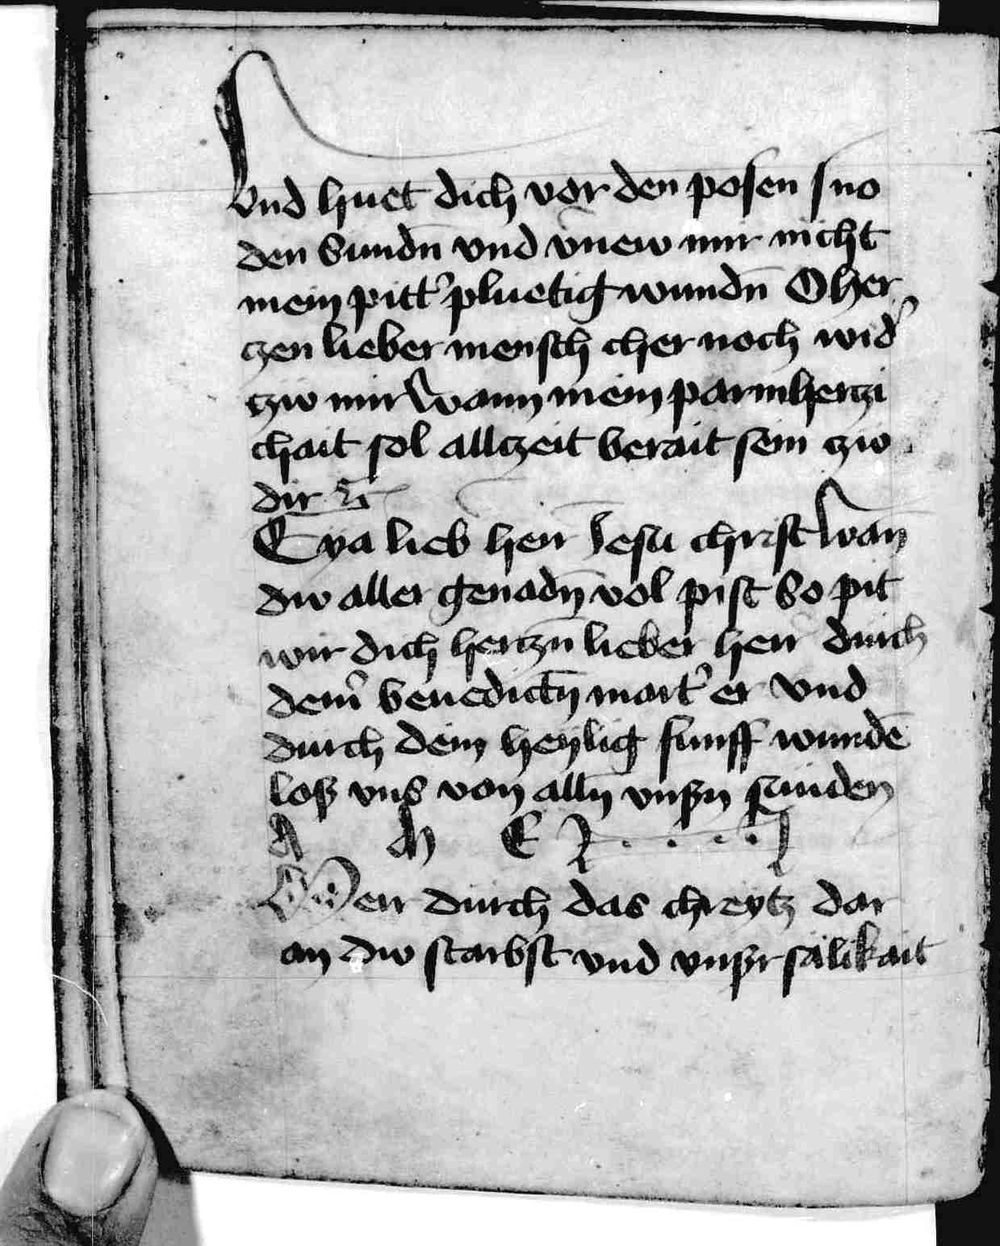 Vnd huet dich vor den posen sno
den sundn̄ vnd vnew mir nicht
mein pitt' pluetig wundn̄ O her
czen lieber mensch cher noch wid'
czw mir Wann mein parmherczi
chait sol allczeit berait sein czw
dir
Eya lieb herr Jesu christ wan
dw aller genadn̄ vol pist So pit
wir dich herczn̄ lieber herr durch
dein benedictn̄ mart' er vnd
durch dein heylig funff wundē
loß vns von alln̄ vnßn sunden
A M E N
Herr durch das chreytz dar
an dw starbst vnd vnßr sälikait